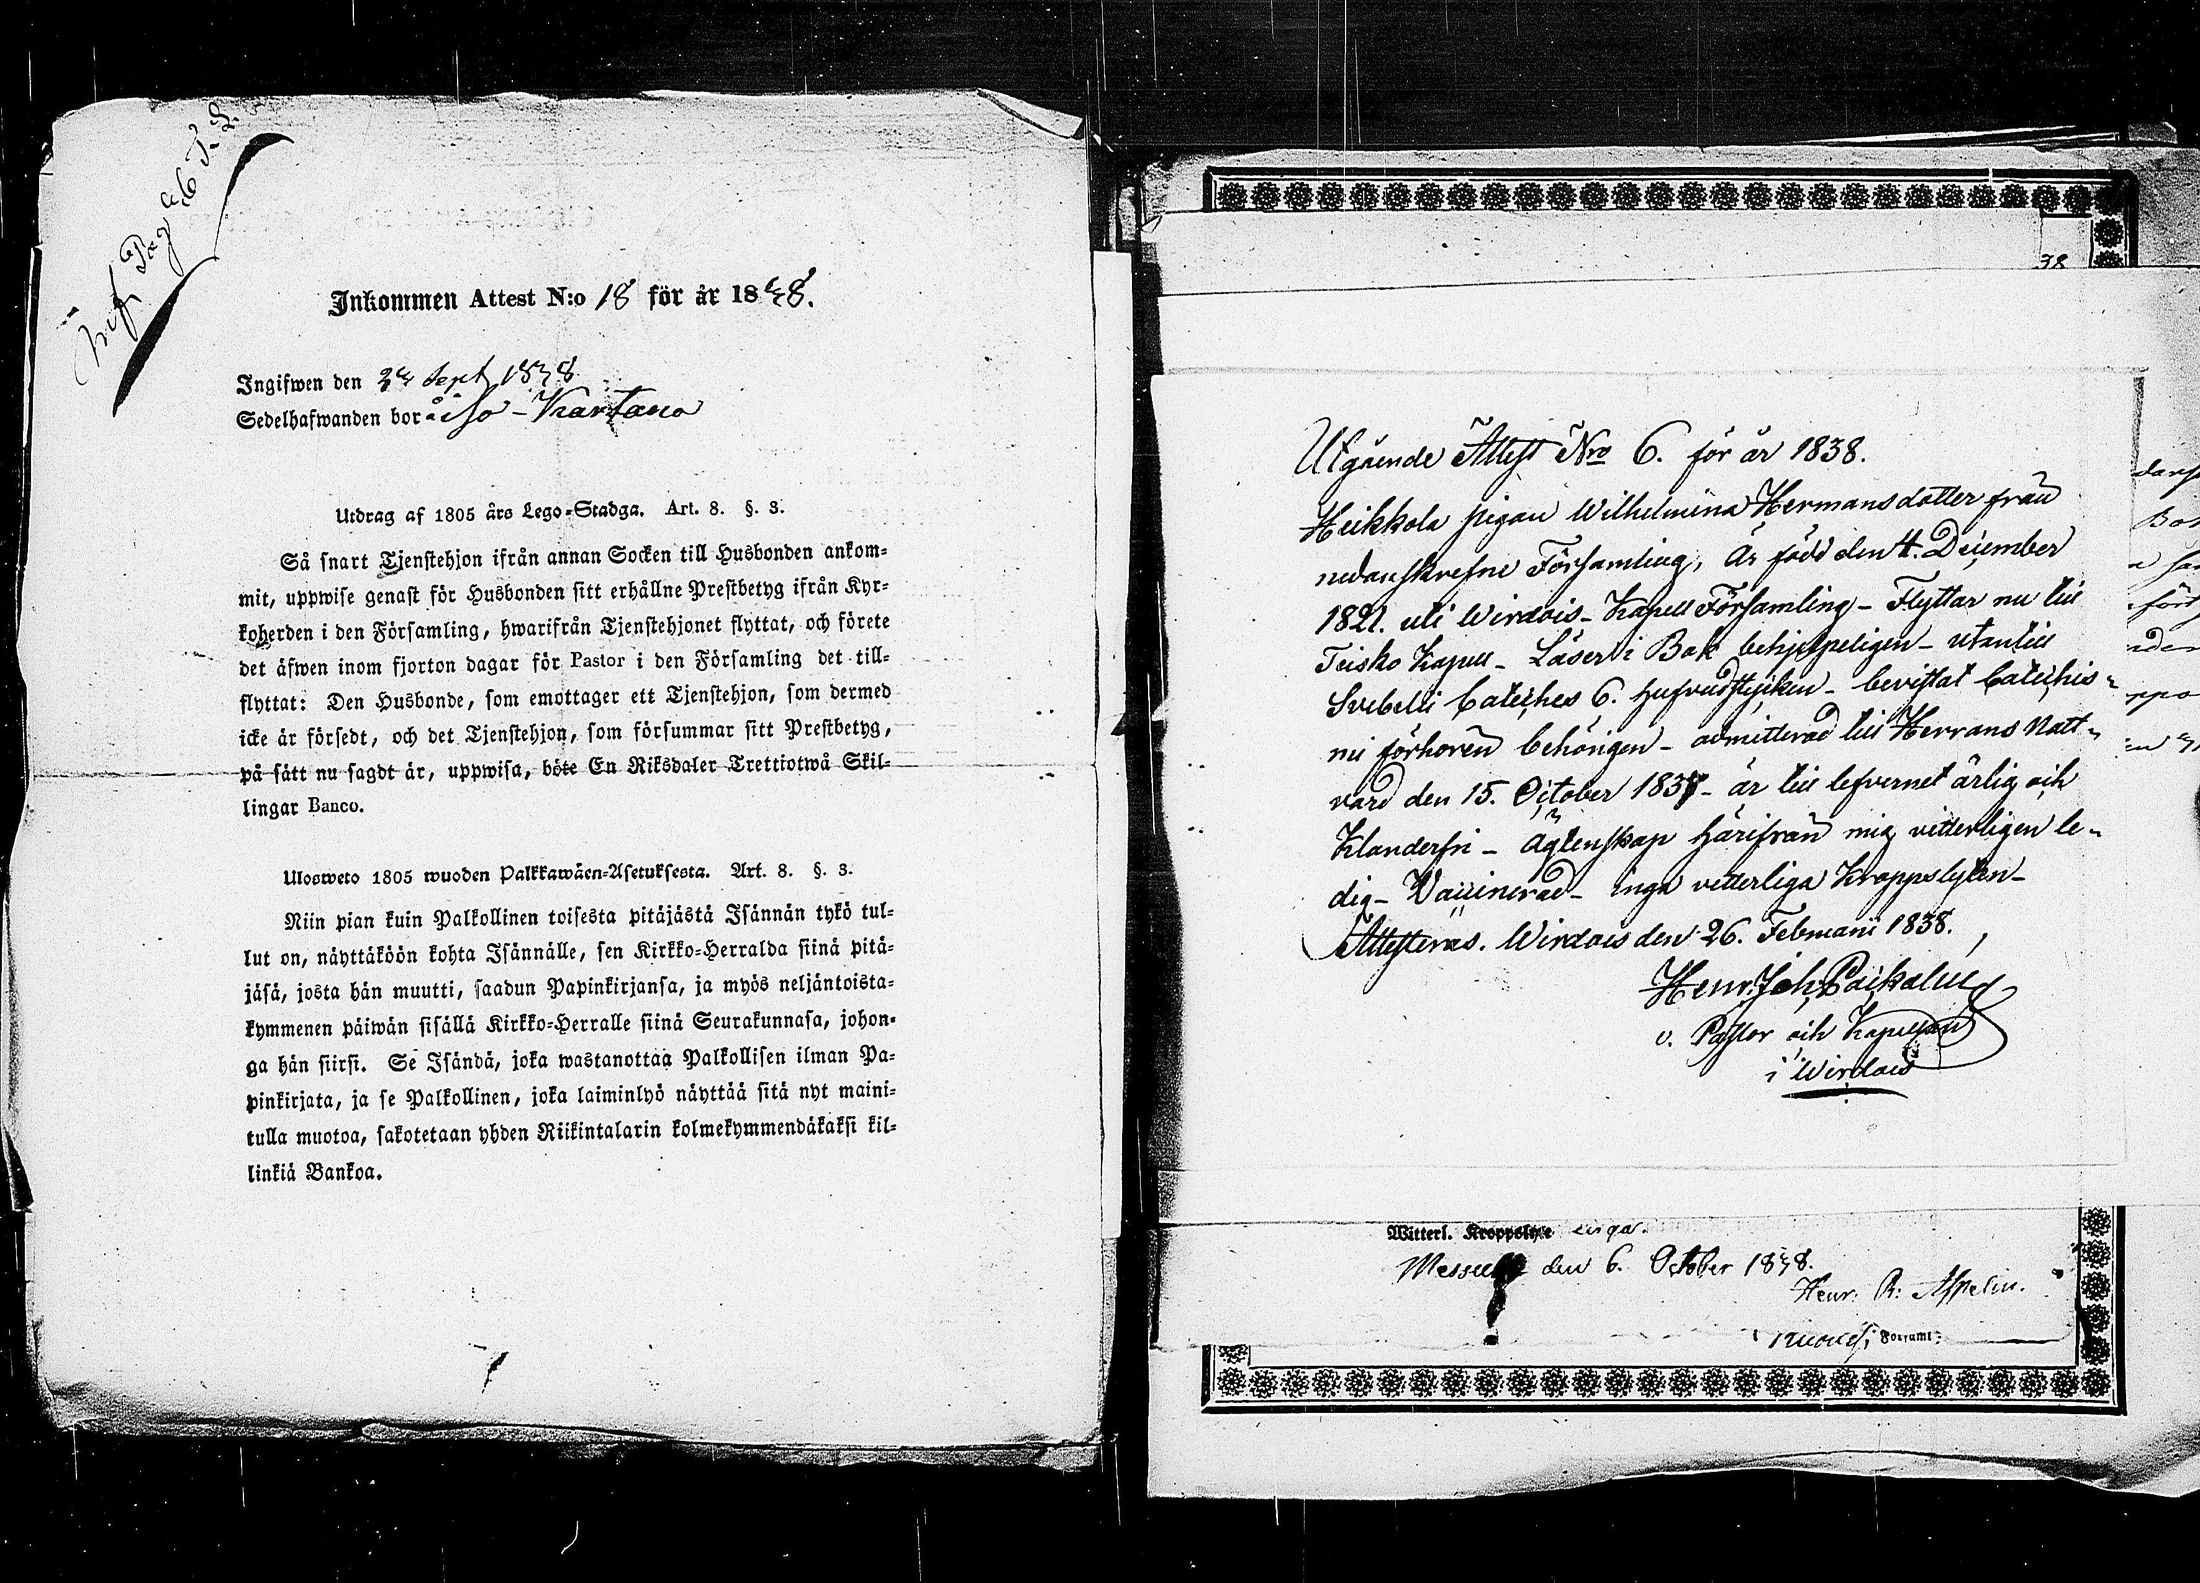 Pag
Inkommen Attest N:o 18 för år 1838.
Ingifwen den Sept 1838
Sedelhafwanden bor å Iso-Kartano
Utdrag af 1805 års Lego-Stadga. Art. 8. §. 3.
Så snart Tjenstehjon ifrån annan Socken till Husbonden ankom-
mit, uppwise genast för Husbonden sitt erhållne Prestbetyg ifrån Kyr-
koherden i den Församling, hwarifrån Tjenstehjonet flyttat, och förete
det äfwen inom fjorton dagar för Pastor i den Församling det till-
flyttat: Den Husbonde, som emottager ett Tjenstehjon, som dermed
icke är försedt, och det Tjenstehjon, som försummar sitt Prestbetyg,
på sätt nu sagdt är, uppwisa, böte En Riksdaler Trettiotwå Skil-
lingar Banco.
Ulosweto 1805 wuoden Palkkawäen-Asetuksesta. Art. 8. §. 3.
Niin pian kuin Palkollinen toisesta pitäjästä Isännän tykö tul-
lut on, näyttäköön kohta Isännälle, sen Kirkko-Herralda siinä pitä-
jäsä, josta hän muutti, saadun Papinkirjansa, ja myös neljäntoista-
kymmenen päiwän sisällä Kirkko-Herralle siinä Seurakunnasa, johon-
ga hän siirsi. Se Isändä, joka wastanottaa Palkollisen ilman Pa-
pinkirjata, ja se Palkollinen, joka laiminlyö näyttää sitä nyt maini-
tulla muotoa, sakotetaan yhden Riikintalarin kolmekymmendäkaksi kil-
linkiä Bankoa.
38
Utgående Attest Nro 6. för år 1838.
Heikkola pigan Wilhelmina Hermansdotter från
nedanskrefne Församling, är född den 4. December
1821. uti Wirdois Kapell Församling – Flyttar nu till
Teisko Kapell – Läser i Bok behjelpeligen – utantill
Svebelii Cateches 6. hufvudstycken – bevistat Catechis-
mi förhören behörigen – admitterad till Herrans Natt-
vard den 15. October 1837 – är till lefvernet ärlig och
Klanderfri – Ägtenskap härifrån mig vitterligen le-
dig – Vaccinerad – inga vetterliga Kroppslyten –
Attesteras. Wirdois den 26. Februarii 1838.
Henr. Joh.
v. Pastor och Kapellan
i Wirdois
Witterl. Kroppslyte inga.
den 6. October 1838.
Henr. R: Aspelin.
Församl: